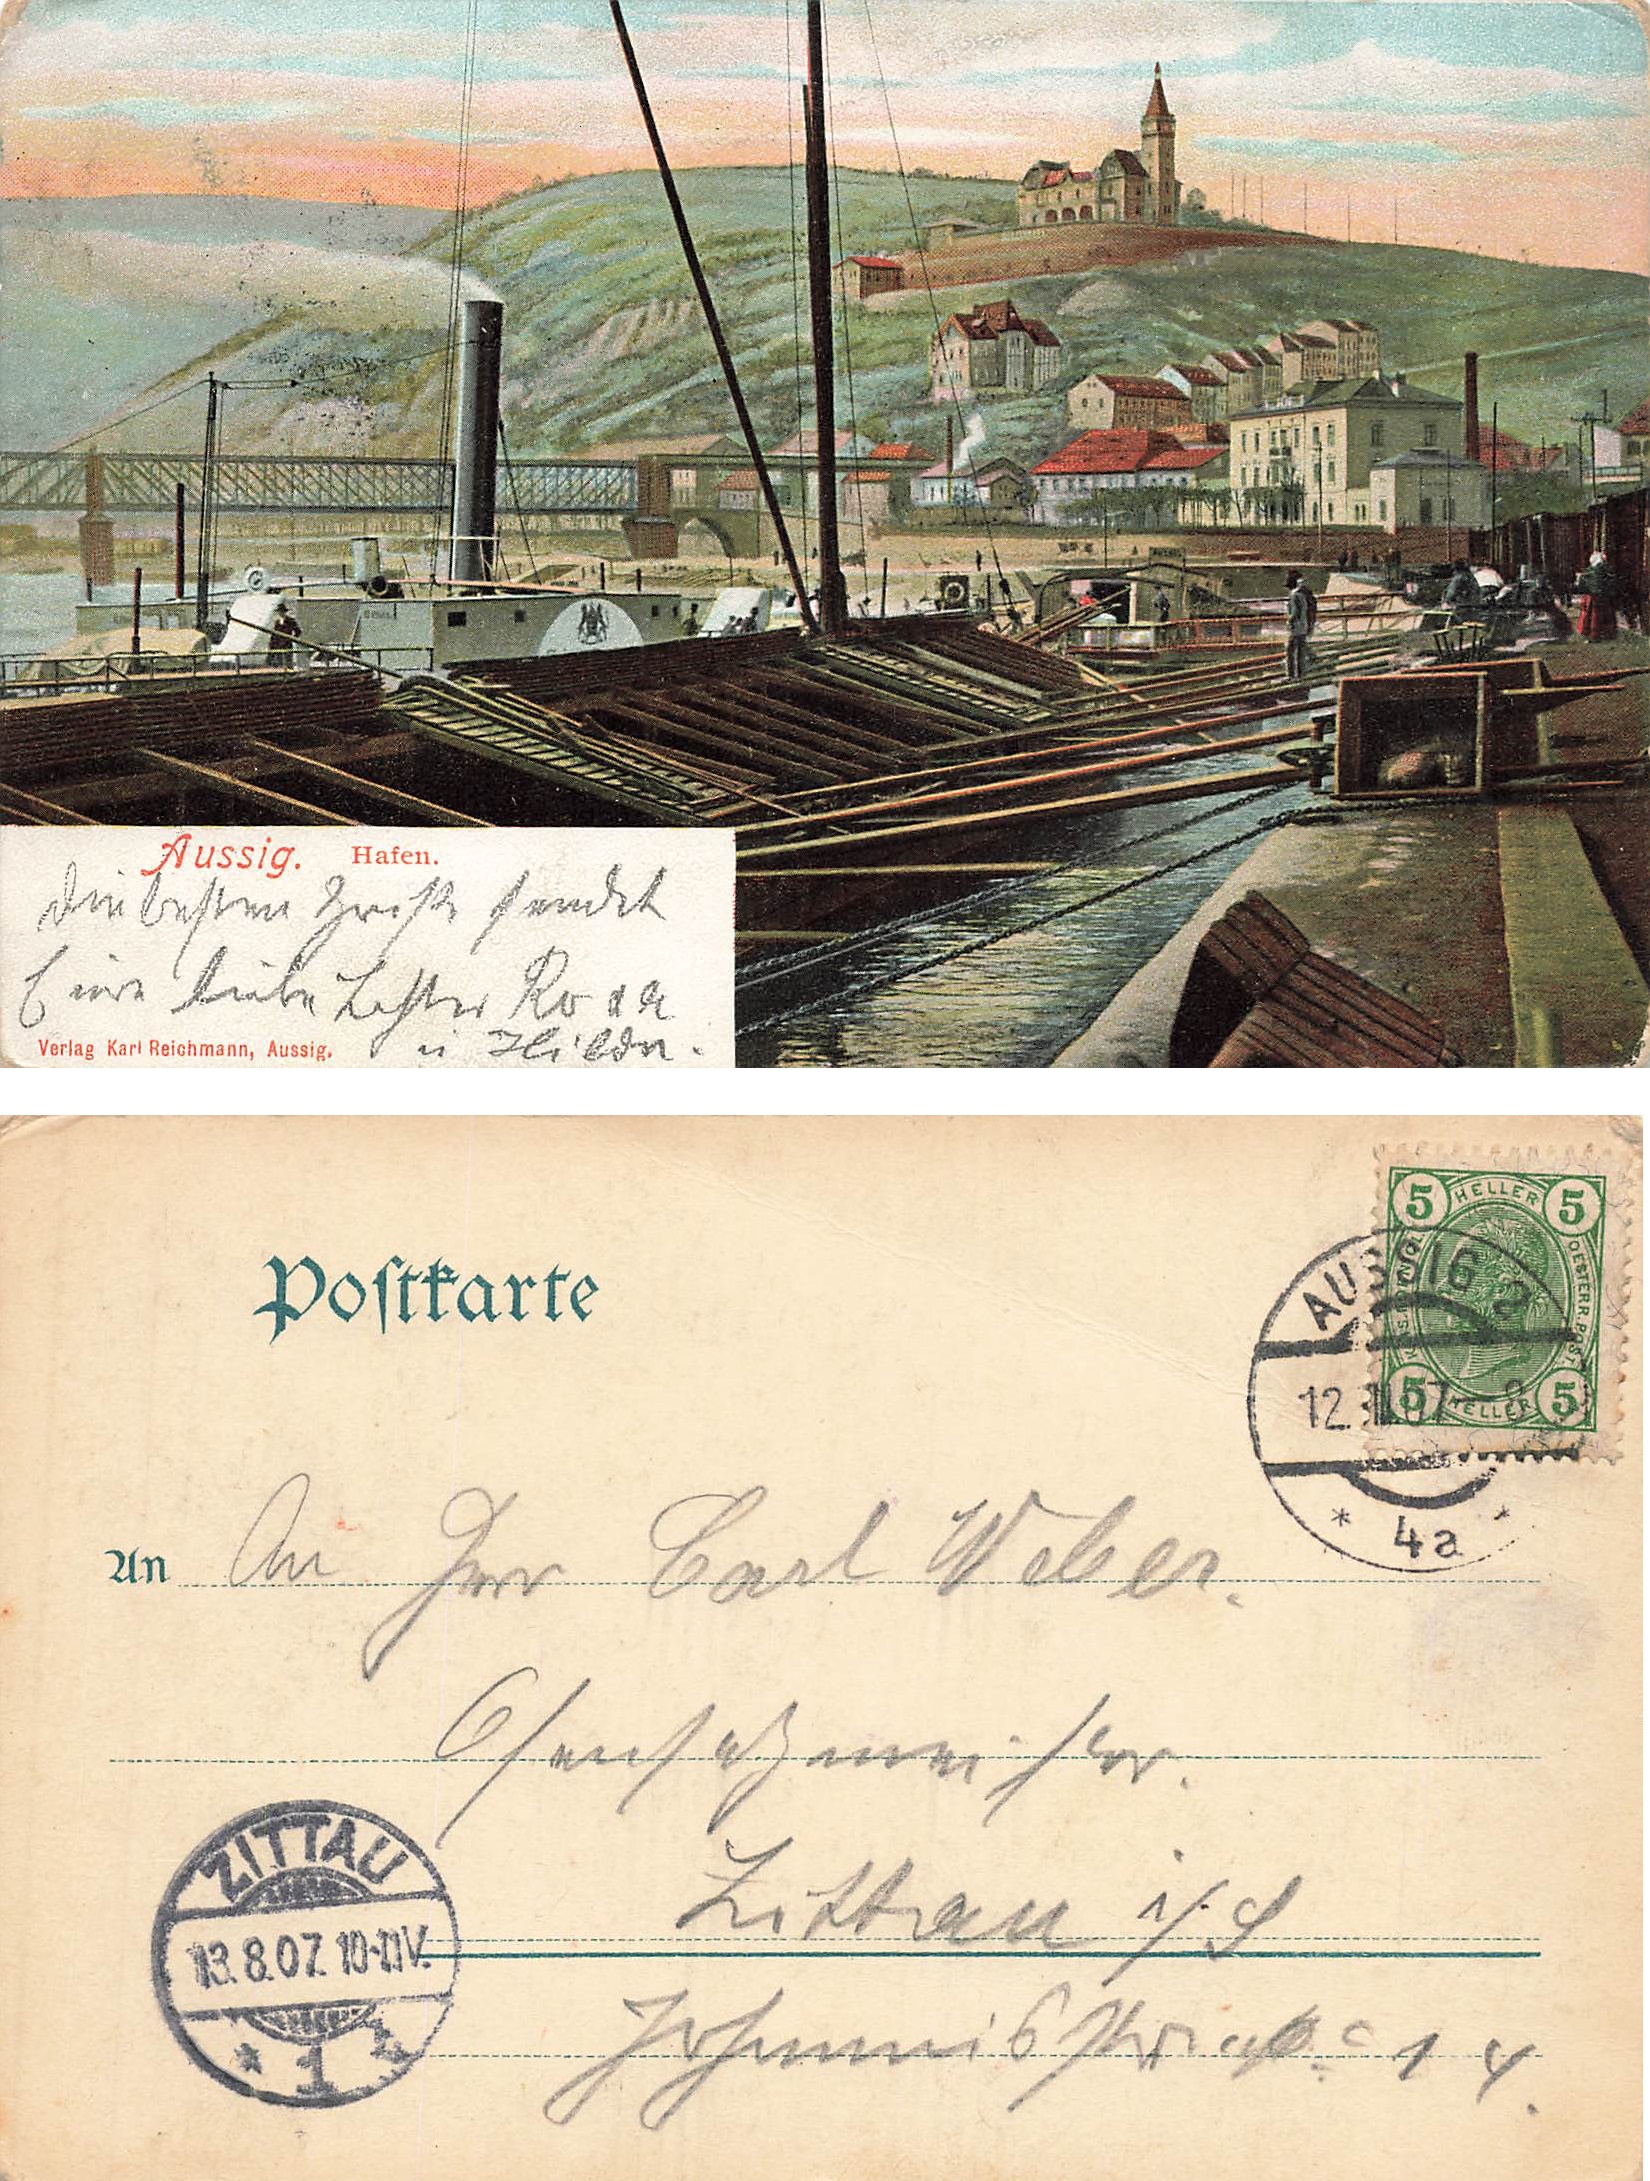 Aussig. Hafen.
Die besten Grüße sendet
Eure liebe Tochter Rosa
u Hilda.
Verlag Karl Reichmann, Aussig.
Postkarte
5 HELLER 5
OESTERR. POST.
5 HELLER 5
AUSSIG 2
12. 07
* 4a *
An An Herr Carl Weber.
Ofensetzmeister.
Zittau i/S
Johannisstraße 14.
ZITTAU
13.8.07. 10-11V.
* 1